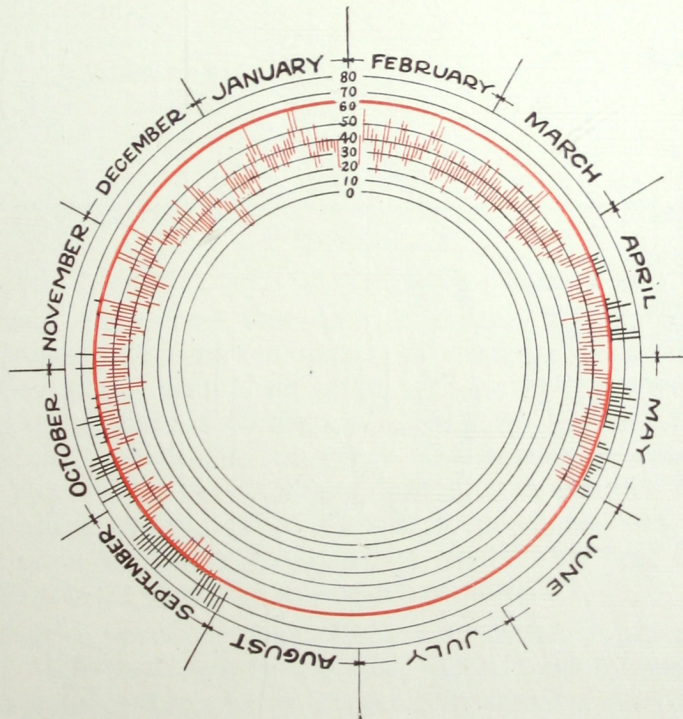 JANUARY
FEBRUARY
MARCH
APRIL
MAY
JUNE
JULY
AUGUST
SEPTEMBER
OCTOBER
NOVEMBER
DECEMBER
80
70
60
50
40
30
20
10
0